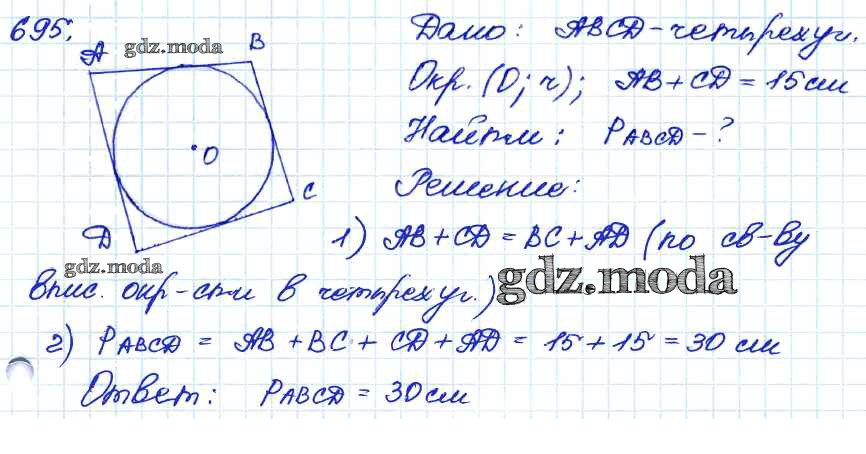 695.
gdz.moda
A
B
O
C
D
gdz.moda
Дано: ABCD-четырехуг.
Окр. (O; r); AB + CD = 15 см
Найти: PABCD - ?
Решение:
1) AB + CD = BC + AD (по св-ву
впис. окр-сти в четырехуг.)
gdz.moda
2) PABCD = AB + BC + CD + AD = 15 + 15 = 30 см
Ответ: PABCD = 30 см